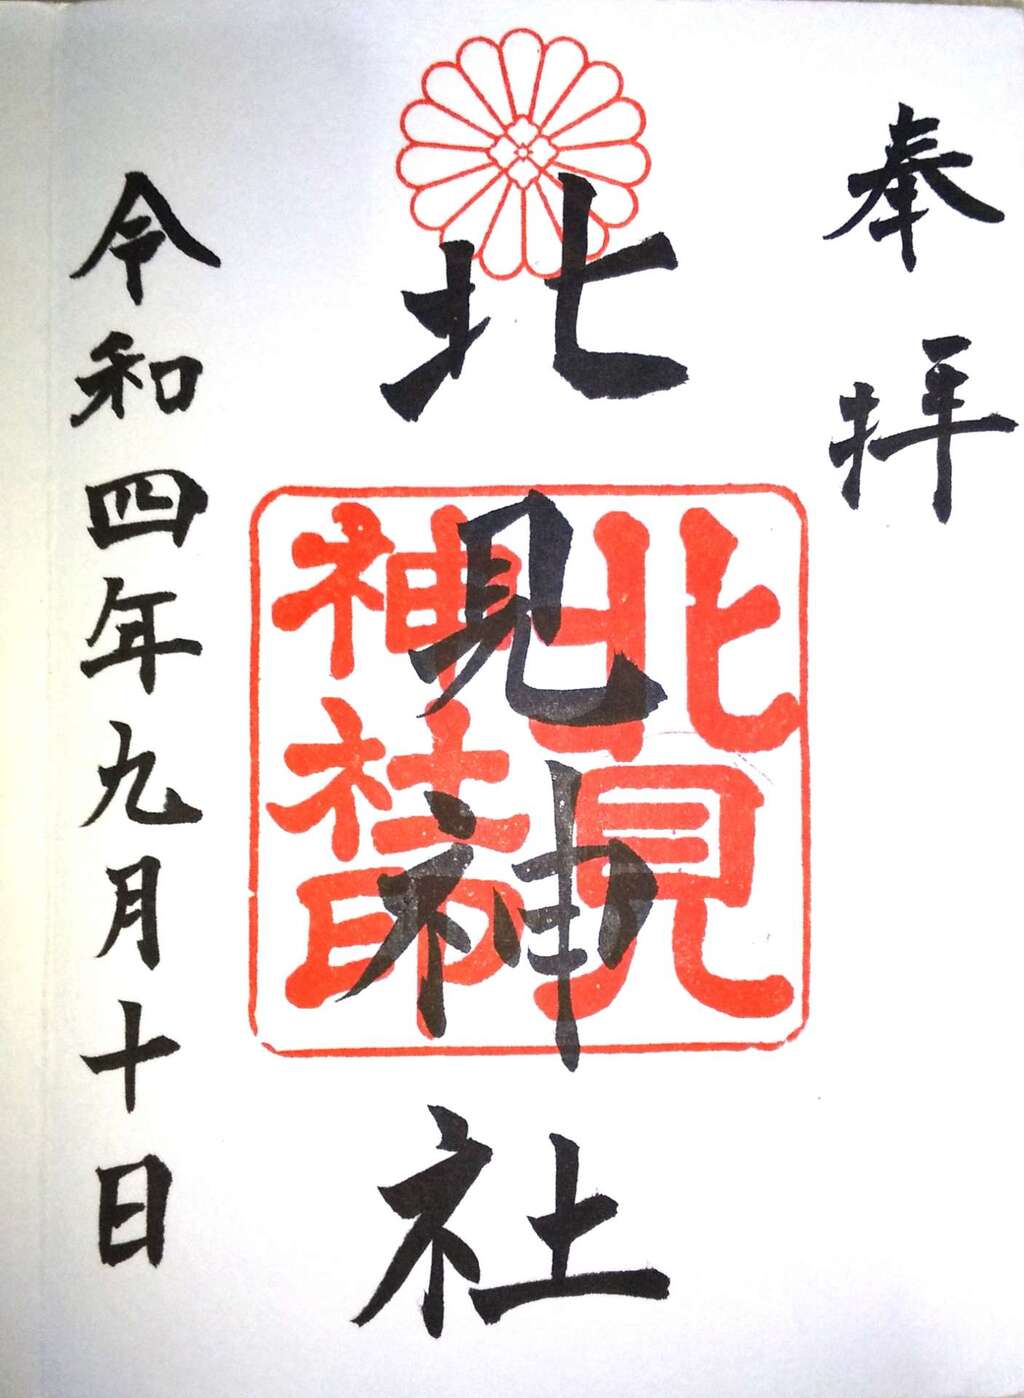 奉拝
北見神社
北見
神社印
令和四年九月十日